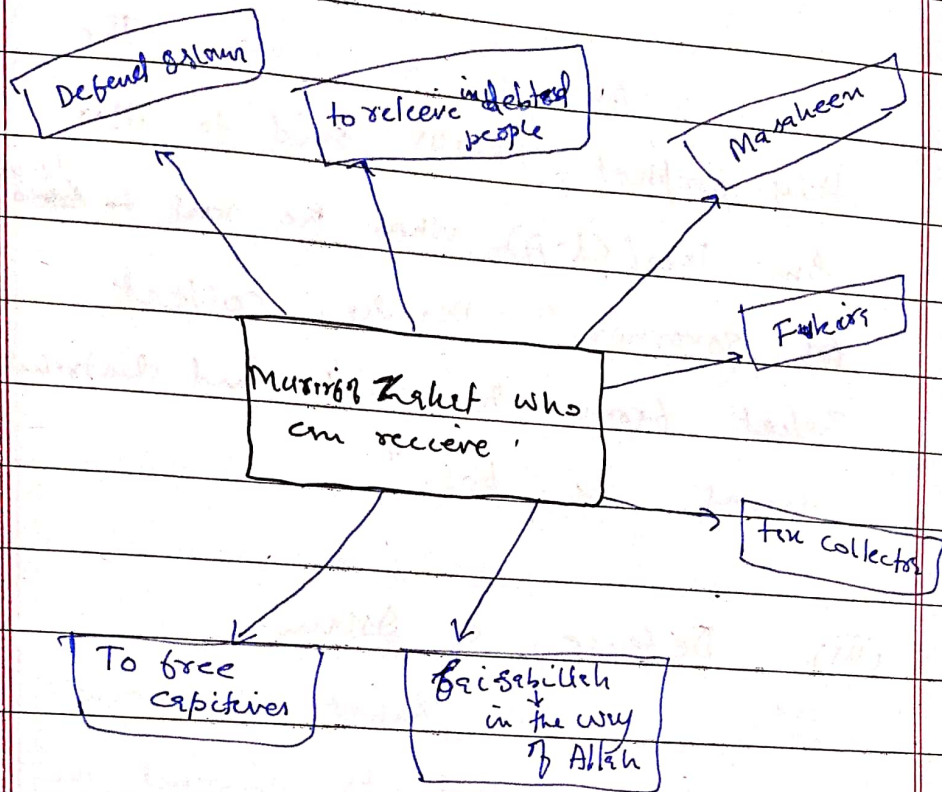 Defend Islam
to releeve indebted
people
Masakeen
Fukeirs
Zakat who
can recieve
tax collectors
To free
capitives
faisabillah
in the way
of Allah